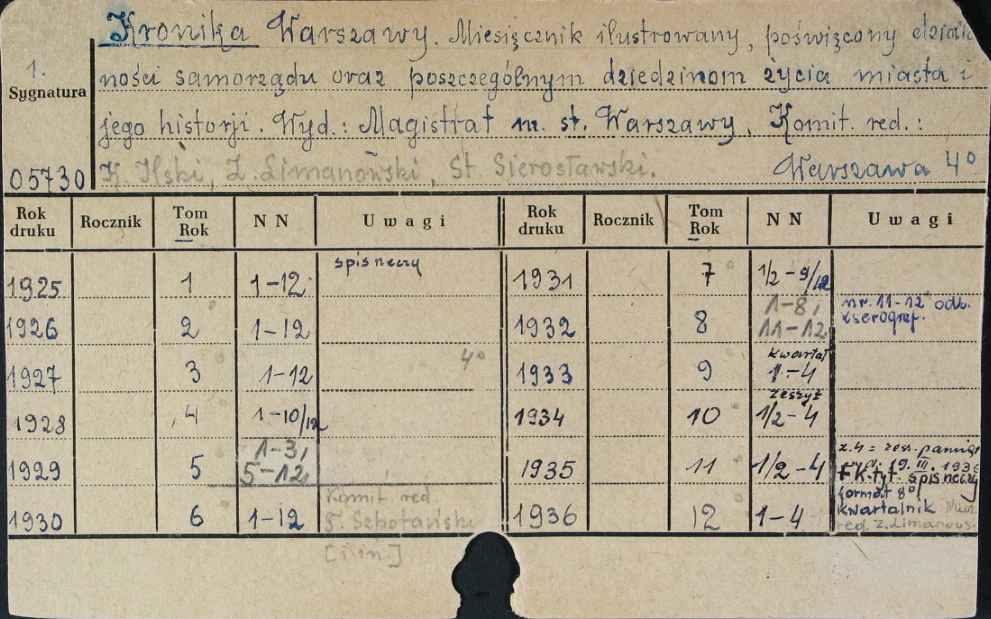 Kronika Warszawy. Miesięcznik ilustrowany, poświęcony działal
1.
Sygnatura
ności samorządu oraz poszczególnym dziedzinom życia miasta i
jego historji. Wyd.: Magistrat m. st. Warszawy. Komit. red.:
05730 K. Ilski, Z. Limanowski, St Sierosławski. Warszawa 4°
Rok druku Rocznik Tom Rok NN Uwagi Rok druku Rocznik Tom Rok NN Uwagi
1925 1 1-12 spis rzeczy 1931 7 1/2-9/12
1926 2 1-12 1932 8 1-8, 11-12 nr. 11-12 odb. kserograf.
1927 3 1-12 4° 1933 9 kwartał 1-4
1928 4 1-10/12 1934 10 zeszyt 1/2-4
1929 5 1-3, 5-12, 1935 11 1/2-4 z.4 = zesz. pamięt
19.III.1936
+ K. tyt. spis rzeczy
format 8°
1930 6 1-12 Komit red. 1936 12 1-4 kwartalnik
red. Z. Limanows.
[i in.]